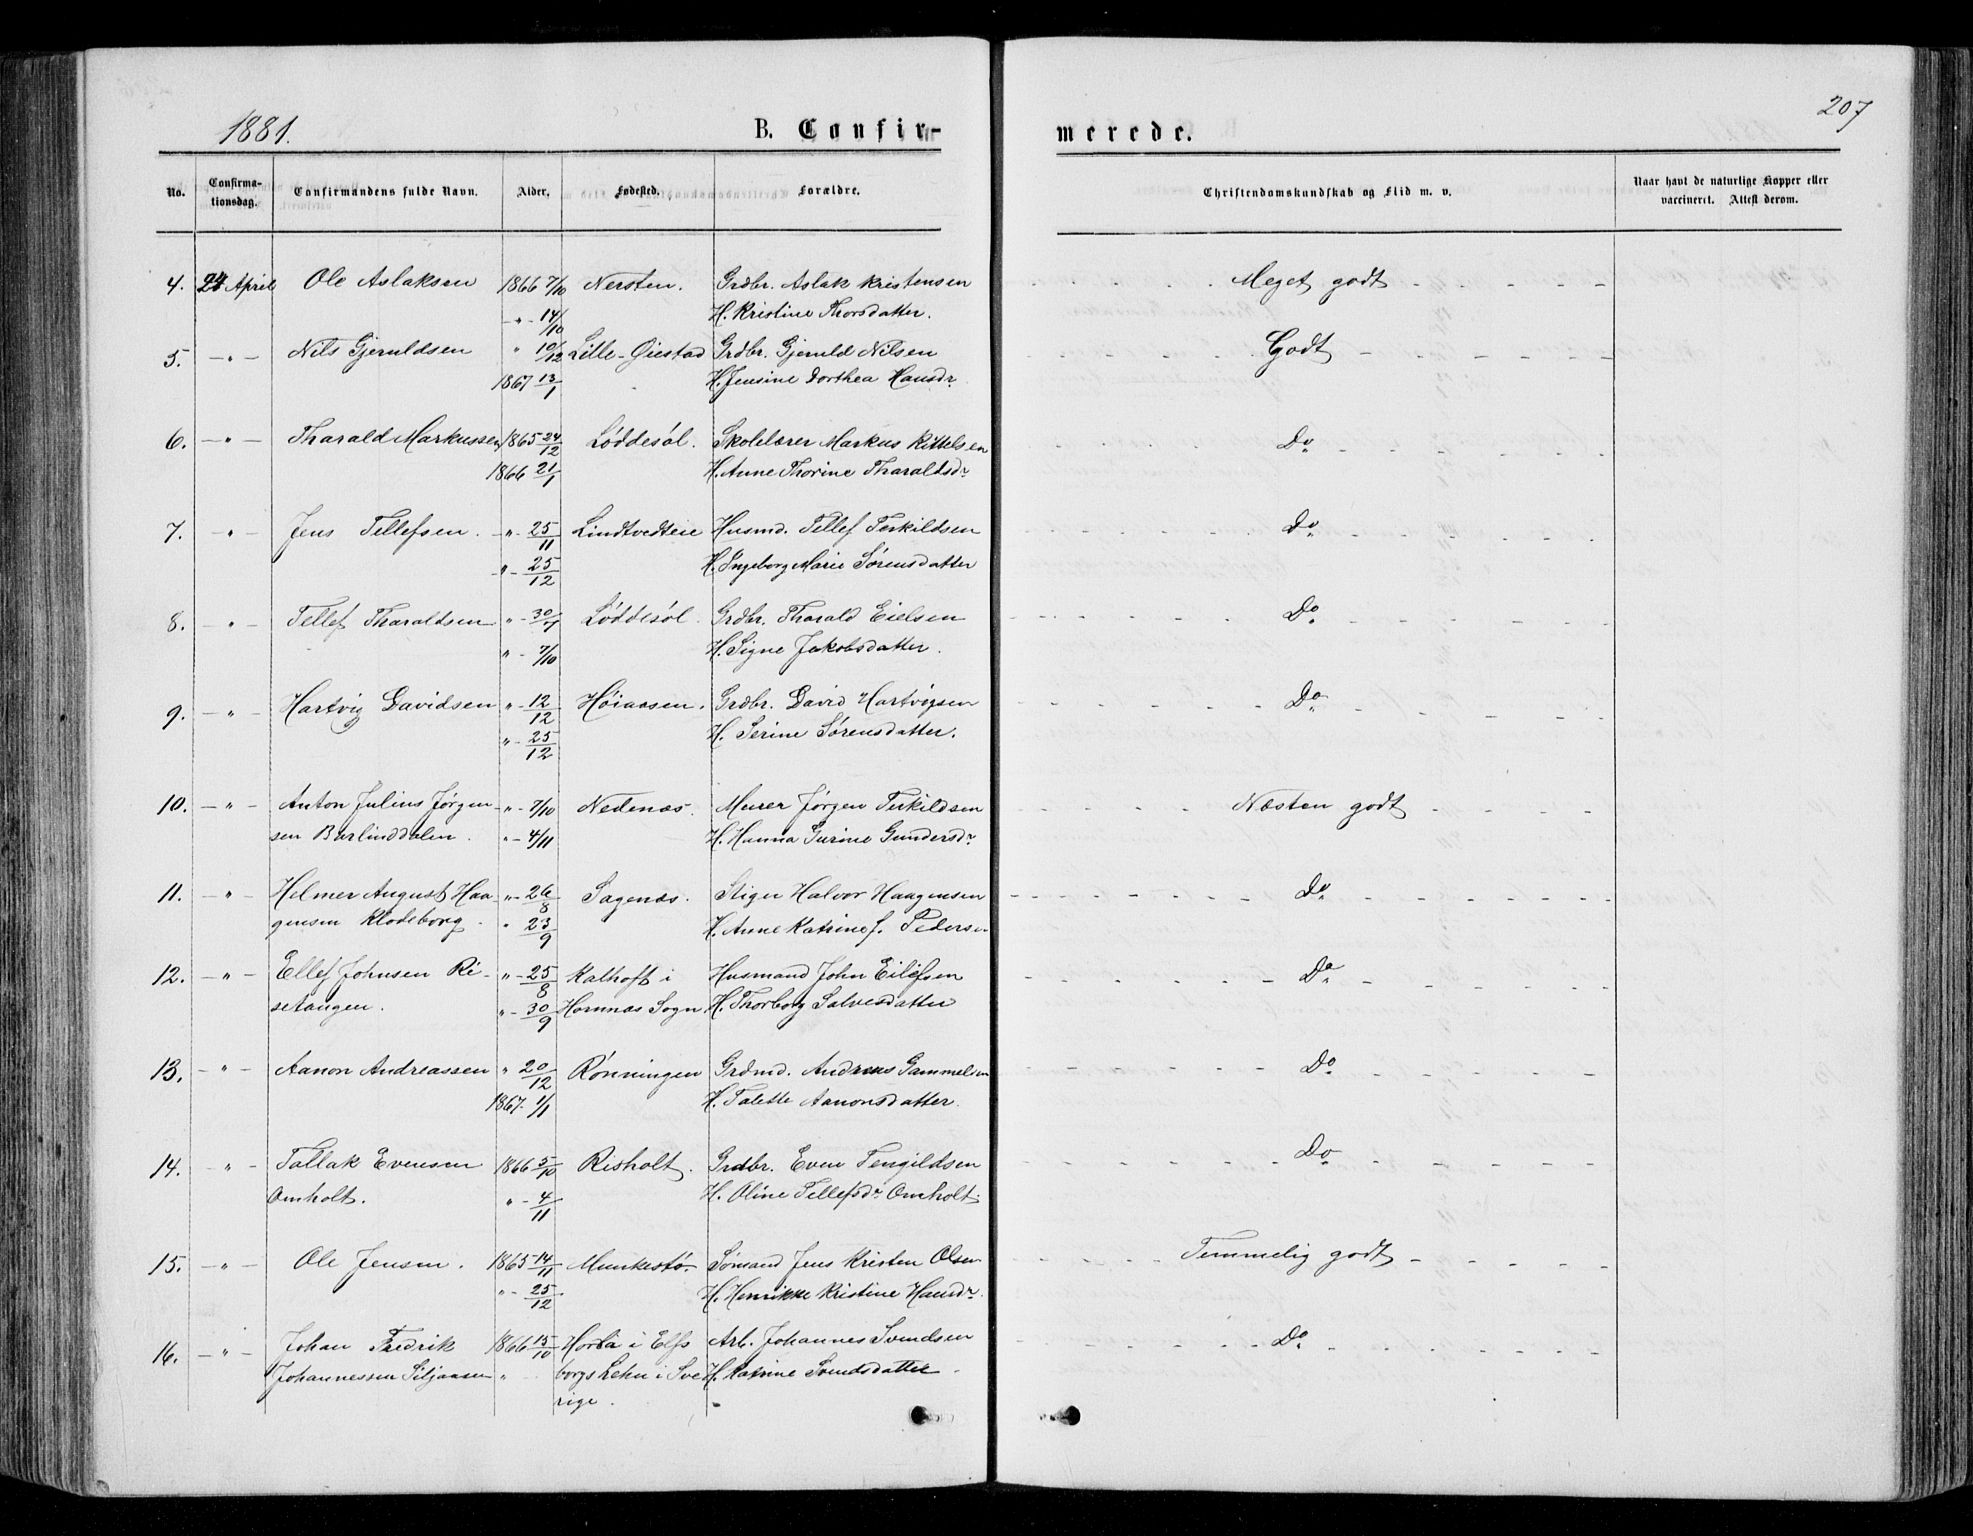 1881.
B. Confir-
merede.
207
No.
Confirma-
tionsdag.
Confirmandens fulde Navn.
Alder.
Fødested.
Forældre.
Christendomskundskab og Flid m. v.
Naar havt de naturlige Kopper eller
vaccineret. Attest derom.
4. 24 April Ole Aslaksen 1866 7/10 Nersten. Grdbr. Aslak Kristensen Meget godt
" 14/10 H. Kristine Thorsdatter.
5. " Nils Gjeruldsen " 10/12 Lille-Øiestad Grdbr. Gjeruld Nilsen Godt
1867 13/1 H. Jensine Dorthea Hansdr.
6. " Tharald Markussen 1865 24/12 Løddesøl. Skolelærer Markus Kittelsen Do
1866 21/1 H. Anne Thorine Tharaldsdr
7. " Jens Tellefsen. " 25/11 Lindtvedteie Husmd. Tellef Terkildsen Do
" 25/12 H. Ingeborg Marie Sørensdatter
8. " Tellef Tharaldsen " 30/7 Løddesøl. Grdbr. Tharald Eielsen Do
" 7/10 H. Signe Jakobsdatter.
9. " Hartvig Davidsen " 12/12 Høiaasen. Grdbr. David Hartvigsen Do
" 25/12 H. Serine Sørensdatter.
10. " Anton Julius Jørgen " 7/10 Nedenæs. Murer Jørgen Terkildsen Næsten godt
sen Barlinddalen. " 4/11 H. Hanna Gurine Gundersdr
11. " Helmer August Haa " 26/8 Sagenæs. Stiger Halvor Haagensen Do
gensen Klodeborg. " 23/9 H. Anne Katrine f. Peders
12. " Ellef Johnsen Ri- " 25/8 Kalhoft i Husmand John Eilefsen Do
setangen. " 30/9 Hornnæs Sogn. H. Thorborg Salvesdatter
13. " Aanon Andreassen " 20/12 Rønningen Grdmd. Andreas Gammelsen Do
1867. 1/1 H. Talette Aanonsdatter.
14. " Tallak Evensen 1866 5/10 Risholt. Grdbr. Even Tengildsen Do
Omholt. " 4/11 H. Oline Tellefsdr Omholt.
15. " Ole Jensen. 1865 14/11 Munkestø. Sømand Jens Kristen Olsen Temmelig godt
" 25/12 H. Henrikke Kristine Hansdr.
16. " Johan Fredrik 1866 15/10 Horla i Elfs Arb. Johannes Svendsen Do
Johannessen Siljaasen " borgs Lehn i Sve H. Katrine Svendsdatter
rige.